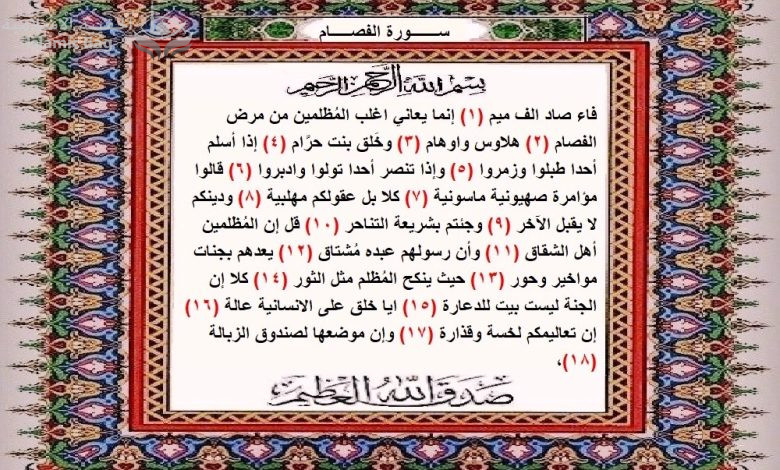 سورة الفصام
بسم الله الرحمن الرحيم
فاء صاد الف ميم (١) إنما يعاني اغلب المُظلمين من مرض
الفصام (٢) هلاوس واوهام (٣) وخَلق بنت حرَّام (٤) إذا أسلم
أحدا طبلوا وزمروا (٥) وإذا تنصر أحدا تولوا وادبروا (٦) قالوا
مؤامرة صهيونية ماسونية (٧) كلا بل عقولكم مهلبية (٨) ودينكم
لا يقبل الآخر (٩) وجئتم بشريعة التناحر (١٠) قل إن المُظلمين
أهل الشقاق (١١) وأن رسولهم عبده مُشتاق (١٢) يعدهم بجنات
مواخير وحور (١٣) حيث ينكح المُظلم مثل الثور (١٤) كلا إن
الجنة ليست بيت للدعارة (١٥) ايا خلق على الانسانية عالة (١٦)
إن تعاليمكم لخسة وقذارة (١٧) وإن موضعها لصندوق الزبالة
(١٨)،
صدق الله العظيم